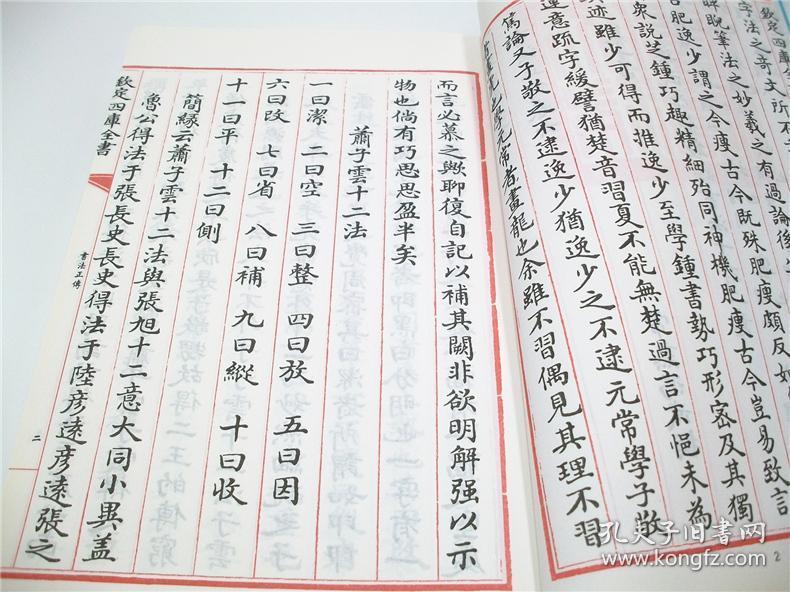 欽定四庫全
字法之奇文所不
睥睨筆法之妙羲之有過論後
古肥逸少謂之今瘦古今既殊肥瘦頗反如
衆説芝鍾巧趣精細殆同神機肥瘦古今豈易致言
迹雖少可得而推逸少至學鍾書埶巧形密及其獨
運意疏字緩譬猶楚音習夏不能無楚過言不悒未為
篤論又子敬之不逮逸少猶逸少之不逮元常學子敬
者畫虎也學元常者畫龍也余雖不習偶見其理不習
2
而言必慕之歟聊復自記以補其闕非欲明解强以示
物也倘有巧思思盈半矣
蕭子雲十二法
一曰潔 二曰空 三曰整 四曰放 五曰因
六曰改 七曰省 八曰補 九曰縱 十曰收
十一曰平 十二曰側
簡緣云蕭子雲十二法與張旭十二意大同小異蓋
魯公得法于張長史長史得法于陸彦遠彦遠張之
欽定四庫全書
書法正傳
二
孔夫子旧书网
www.kongfz.com